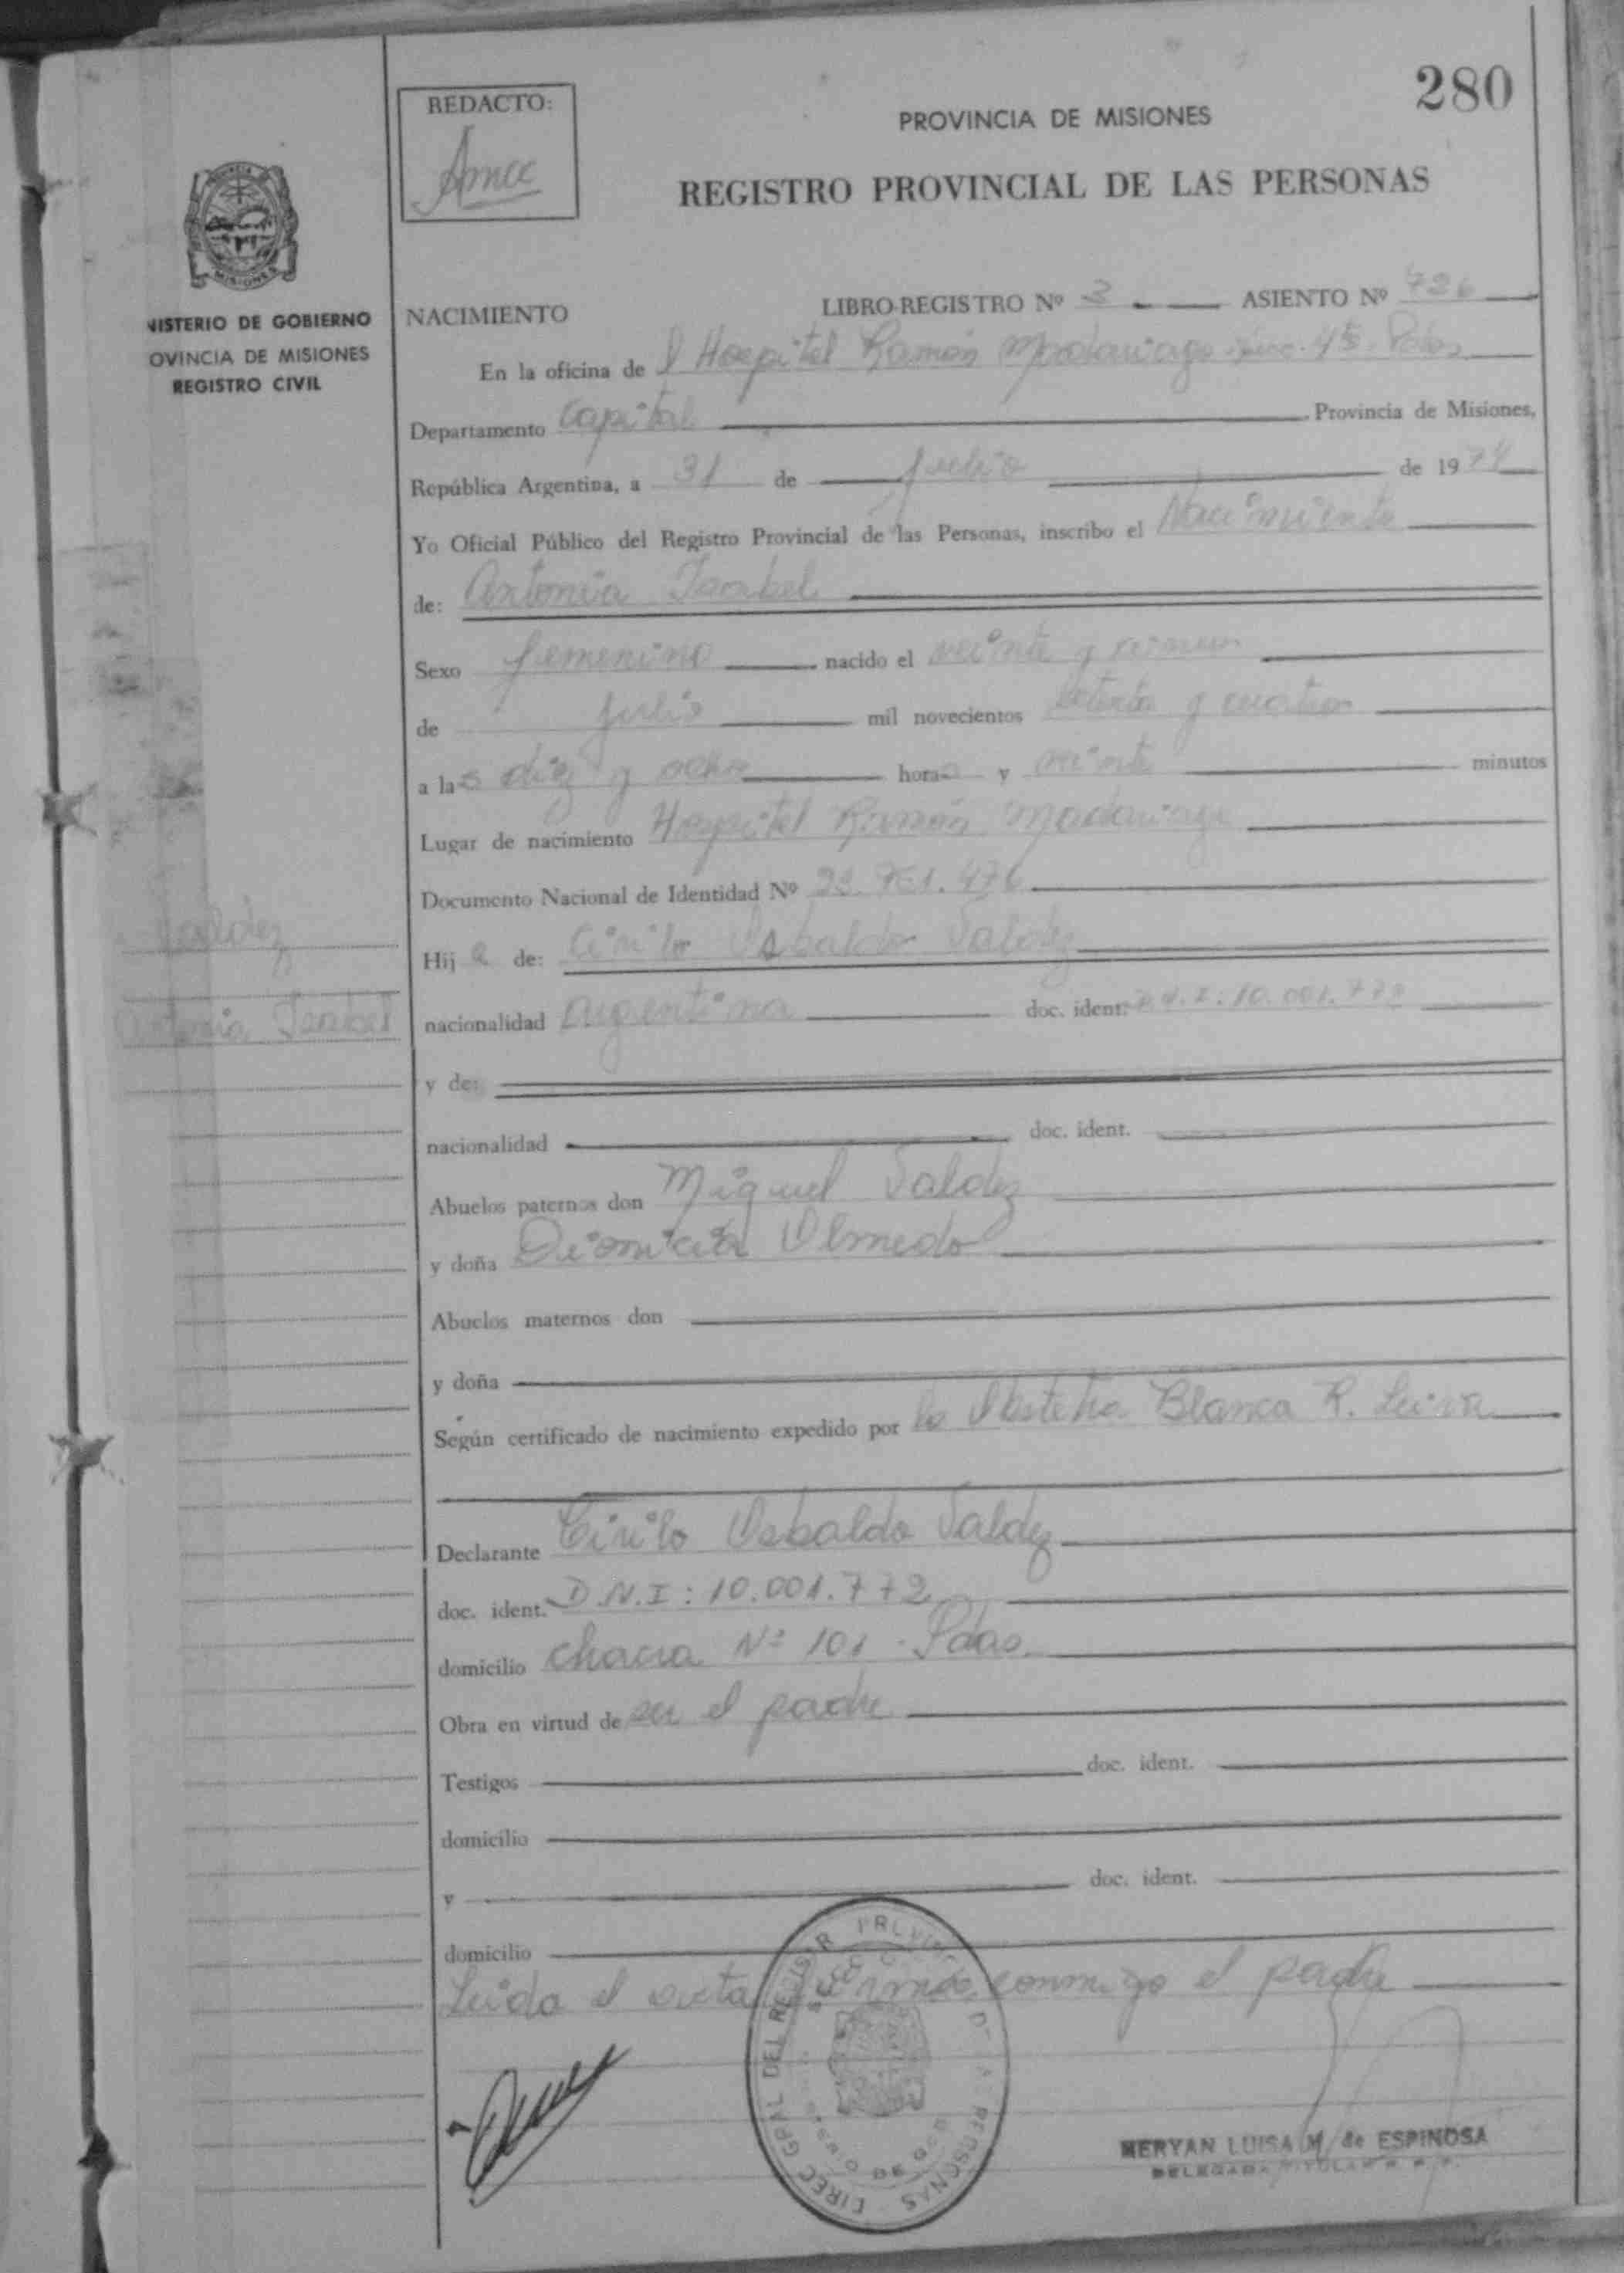 280
REDACTO:
PROVINCIA DE MISIONES
REGISTRO PROVINCIAL DE LAS PERSONAS
MISIONES
NISTERIO DE GOBIERNO
OVINCIA DE MISIONES
REGISTRO CIVIL
NACIMIENTO
LIBRO-REGISTRO Nº 3 ASIENTO Nº 726
En la oficina de l Hospital Ramón Madariaga
Departamento Capital Provincia de Misiones,
República Argentina, a 31 de julio de 1974
Yo Oficial Público del Registro Provincial de las Personas, inscribo el Nacimiento
de: Antonia Isabel
Sexo femenino nacido el veinte y
de julio mil novecientos setenta y cuatro
a las diez y ocho horas y veinte minutos
Lugar de nacimiento Hospital Ramón Madariaga
Documento Nacional de Identidad Nº
Valdez
Hij a de: Cirilo Osbaldo Valdez
Antonia Isabel
nacionalidad argentina doc. ident. D.N.I: 10.001.772
y de:
nacionalidad doc. ident.
Abuelos paternos don Miguel Valdez
y doña Dionicia Olmedo
Abuelos maternos don
y doña
Según certificado de nacimiento expedido por la Obstetra Blanca R. Leiva
Declarante Cirilo Osbaldo Valdez
doc. ident. D.N.I: 10.001.772
domicilio chacra Nº 101 - Pdas
Obra en virtud de ser el padre
Testigos doc. ident.
domicilio
y doc. ident.
domicilio
Leida el acta firma conmigo el padre
DIREC GRAL DEL REGISTR PROVINC DE LAS PERSONAS
MERYAN LUISA M. de ESPINOSA
DELEGADA TITULAR